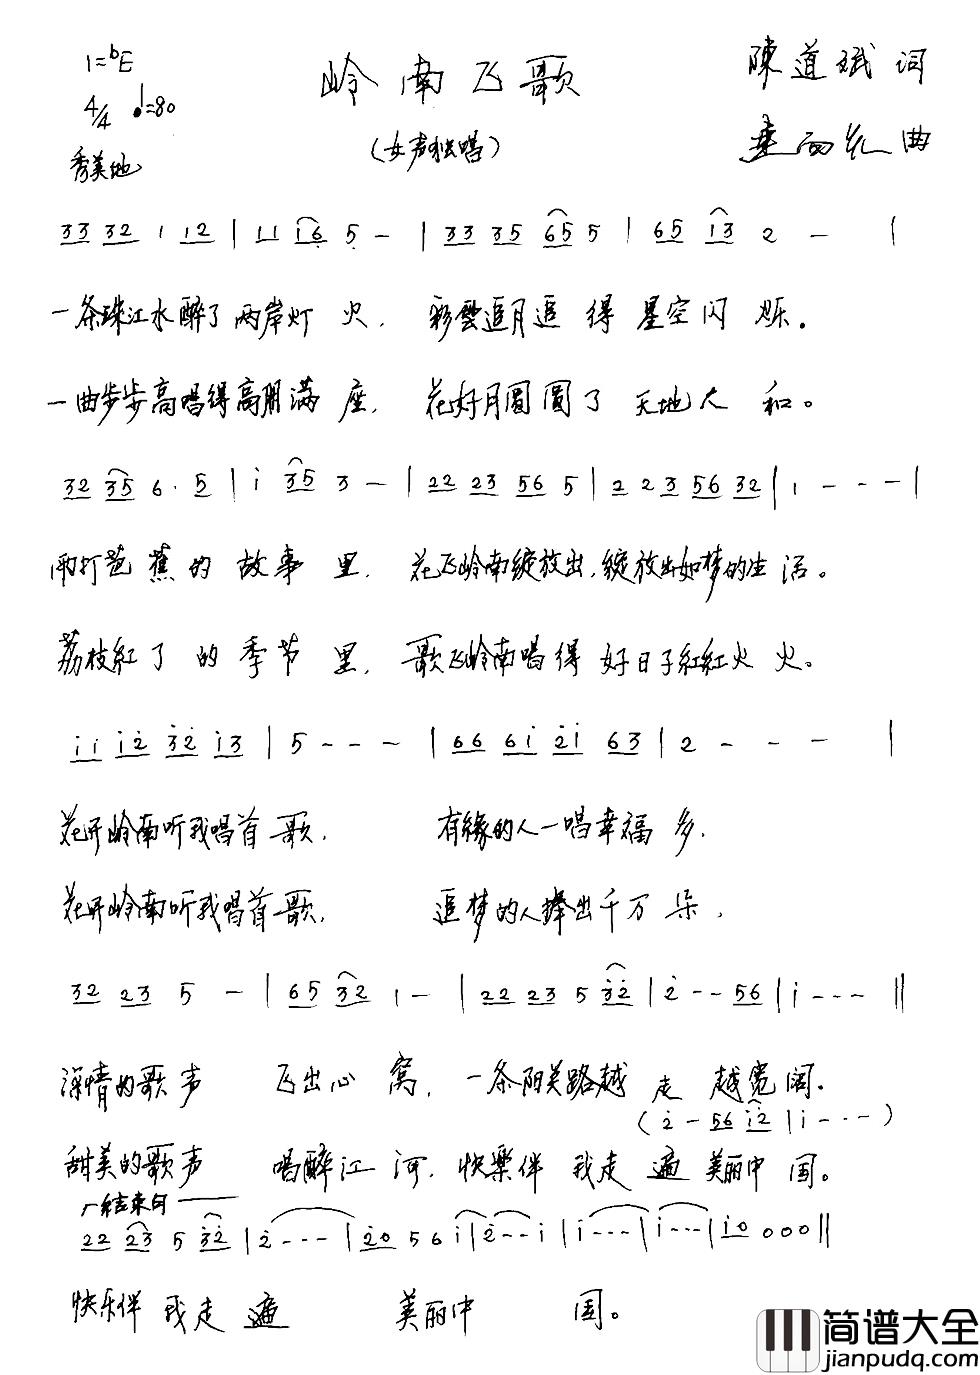 1=ᵇE
岭南飞歌
陳道斌 词
4/4 ♩=80
(女声独唱)
曲
秀美地
33 32 1 12 | 11 i6 5 - | 33 35 65 5 | 65 i3 2 - |
一条珠江水醉了两岸灯火，彩雲追月追得星空闪烁。
一曲步步高唱得高朋满座，花好月圓圓了天地人和。
32 35 6· 5 | i 35 3 - | 22 23 56 5 | 2 2 3 56 32 | 1 - - - |
雨打芭蕉的故事里，花飞岭南绽放出，绽放出如梦的生活。
荔枝紅了的季节里，歌飞岭南唱得好日子紅紅火火。
ii i2 32 i3 | 5 - - - | 66 6i 2i 63 | 2 - - - |
花开岭南听我唱首歌，有緣的人一唱幸福多，
花开岭南听我唱首歌，追梦的人捧出千万朵，
32 23 5 - | 65 32 1 - | 22 23 5 32 | 2 - - 56 | i - - - ||
深情的歌声飞出心窝，一条阳关路越走越宽阔。
(2 - 56 i2 | i - - -)
甜美的歌声唱醉江河，快樂伴我走遍美丽中国。
结束句
22 23 5 32 | 2 - - - | 20 5 6 i | 2 - - i | i - - - | i - - - | i0 0 0 0 ||
快乐伴我走遍美丽中国。
简谱大全
jianpudq.com